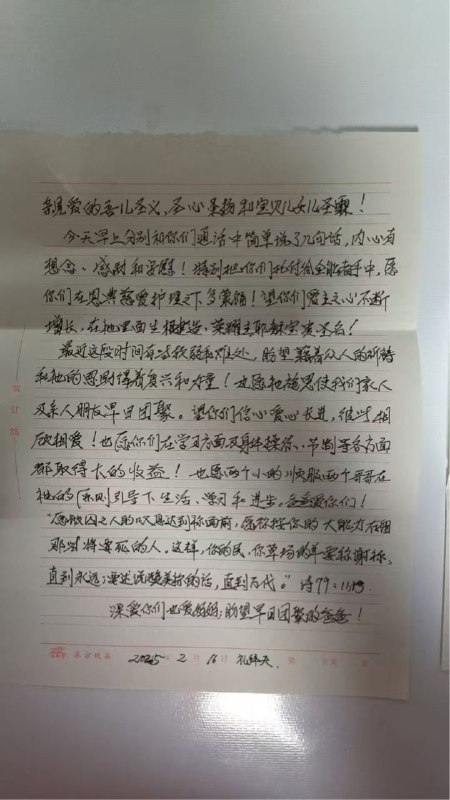 亲爱的吾儿圣义,圣心圣扬和宝贝儿女儿圣霖!
今天早上分别和你们通话中简单说了几句话,内心有
想念、感动和安慰!特别把你们托付给全能者手中,愿
你们在恩典慈爱护理之下多蒙福!望你们爱主之心不断
增长,在他里面生根建造,荣耀主耶稣宝贵圣名!
最近这段时间有些软弱和难处,盼望藉着众人的祈祷
和他的恩助得着复兴和力量!也愿他施恩使我们家人
及亲人朋友早日团聚。望你们信心爱心长进,彼此相
欣相爱!也愿你们在学习方面及身体操练、节制等各方面
都取得大的收益!也愿两个小的顺服两个哥哥在
他的原则引导下生活、学习和进步,爸爸爱你们!
“愿被囚之人的叹息达到你面前,愿你按你的大能力存留
那些将要死的人。这样,你的民,你草场的羊要称谢你,
直到永远;要述说赞美你的话,直到万代。”诗79:11,13
深爱你们也爱妈妈;盼望早日团聚的爸爸!
2025年2月16日 礼拜天